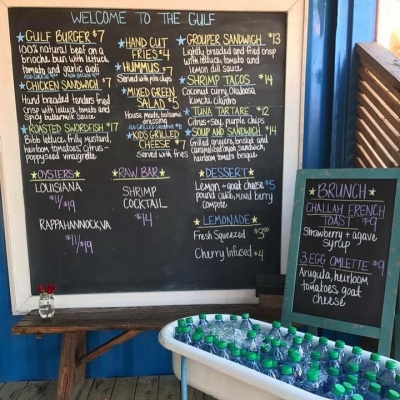 WELCOME TO THE GULF
GULF BURGER $7
100% natural beef on a
brioche bun with lettuce,
tomato and garlic aioli
CHICKEN SANDWICH $7
Hand breaded tenders fried
crisp with lettuce, tomato and
spicy buttermilk sauce
ROASTED SWORDFISH $17
Bibb lettuce, frilly mustard,
heirloom tomatoes, citrus-
poppyseed vinaigrette
HAND CUT
FRIES $4
HUMMUS $7
Served with pita chips
MIXED GREEN
SALAD $5
House made, balsamic
dressing
KIDS GRILLED
CHEESE $7
Served with fries
GROUPER SANDWICH $13
Lightly breaded and fried crisp
with lettuce, tomato and
lemon dill sauce
SHRIMP TACOS $14
Coconut curry, Okaloosa
kimchi, cilantro
TUNA TARTARE $12
Citrus + soy, purple chips
SOUP AND SANDWICH $14
Grilled gruyere, brisket and
caramelized onion sandwich,
heirloom tomato bisque
OYSTERS
LOUISIANA
$11/$19
RAPPAHANNOCK, VA
$11/$19
RAW BAR
SHRIMP
COCKTAIL
$14
DESSERT
Lemon + goat cheese $5
pound cake, mixed berry
compote
LEMONADE
Fresh Squeezed $3.50
Cherry Infused $4
BRUNCH
CHALLAH FRENCH
TOAST $9
Strawberry + agave
syrup
3 EGG OMLETTE $9
Arugula, heirloom
tomatoes, goat
cheese